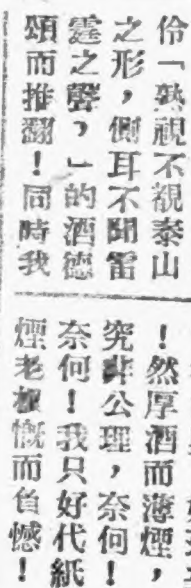 伶「熟視不視泰山
之形，側耳不聞雷
霆之聲，」的酒德
頌而推翻！同時我
！然厚酒而薄煙，
究非公理，奈何！
奈何！我只好代紙
煙老極慨而負憾！